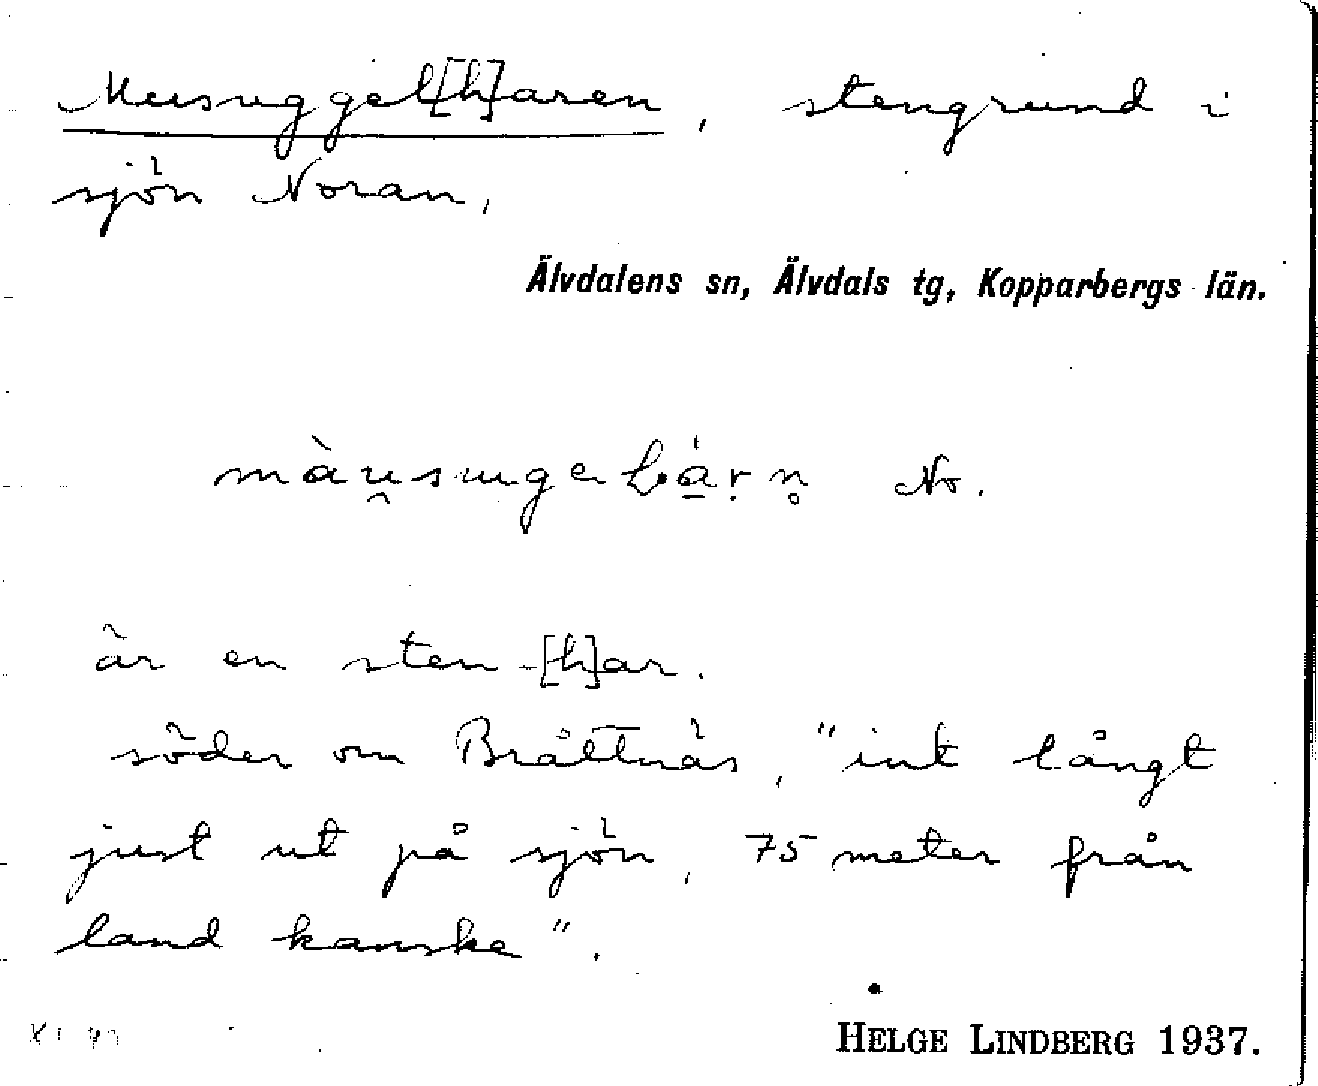 Musuggel[h]aren, stengrund i
sjön Noran,
Älvdalens sn, Älvdals tg, Kopparbergs län.
No.
är en sten-[h]ar.
söder om Bråttnäs, "int långt
just ut på sjön, 75 meter från
land kanske".
HELGE LINDBERG 1937.